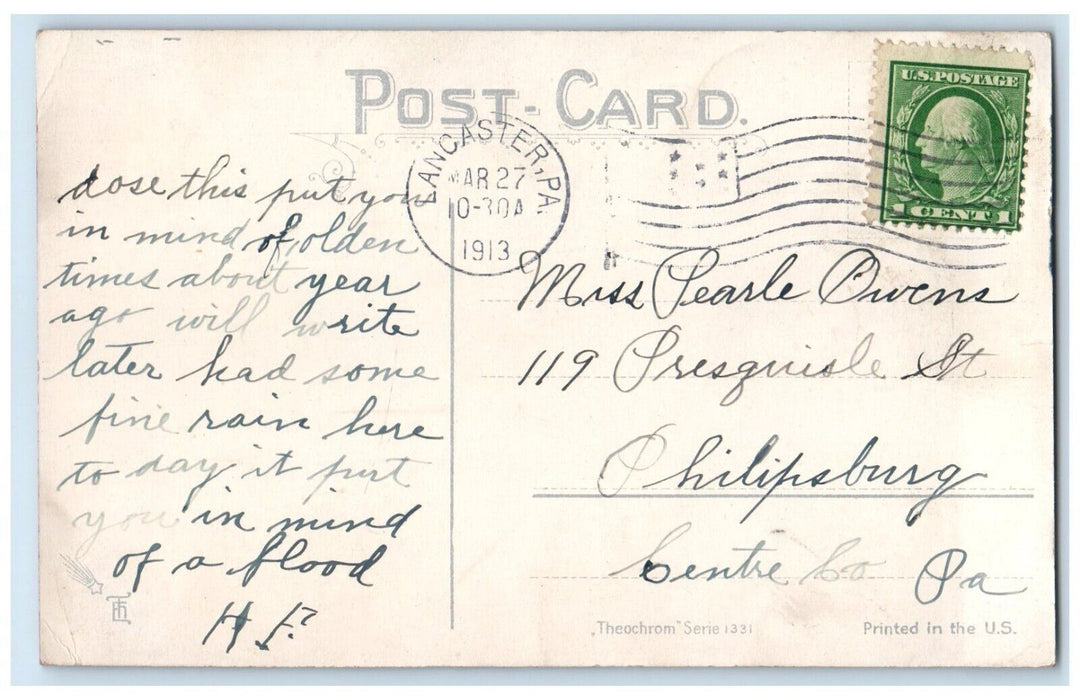 POST-CARD.
U.S.POSTAGE
1 CENT 1
LANCASTER, PA.
MAR 27
10-30A
1913
dose this put you
in mind of olden
times about year
ago will write
later had some
fine rain here
to day it put
you in mind
of a flood
H F.
Miss Pearle Owens
119 Presquisle St
Philipsburg
Centre Co Pa
„Theochrom" Serie 1331
Printed in the U.S.